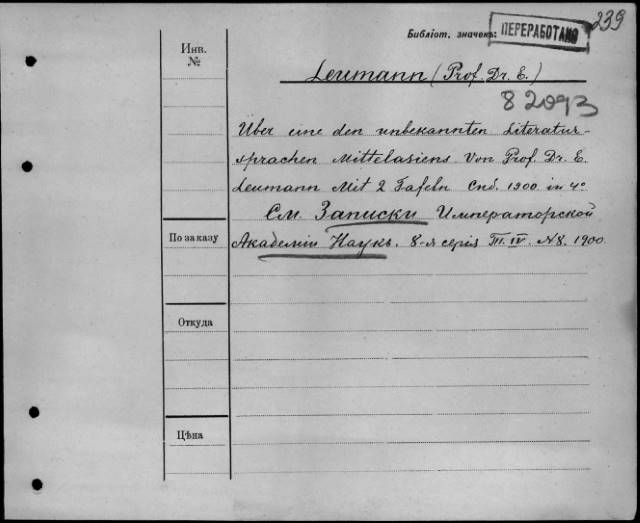 239
Библіот. значекъ: ПЕРЕРАБОТАНО
Инв.
№
Leumann (Prof. Dr. E.)
82093
Über eine den unbekannten Literatur-
sprachen Mittelasiens von Prof. Dr. E.
Leumann Mit 2 Tafeln Спб. 1900 in 4º
См. Записки Императорской
По заказу
Академіи Наукъ. 8-я серія Т. IV. №8. 1900.
Откуда
Цѣна